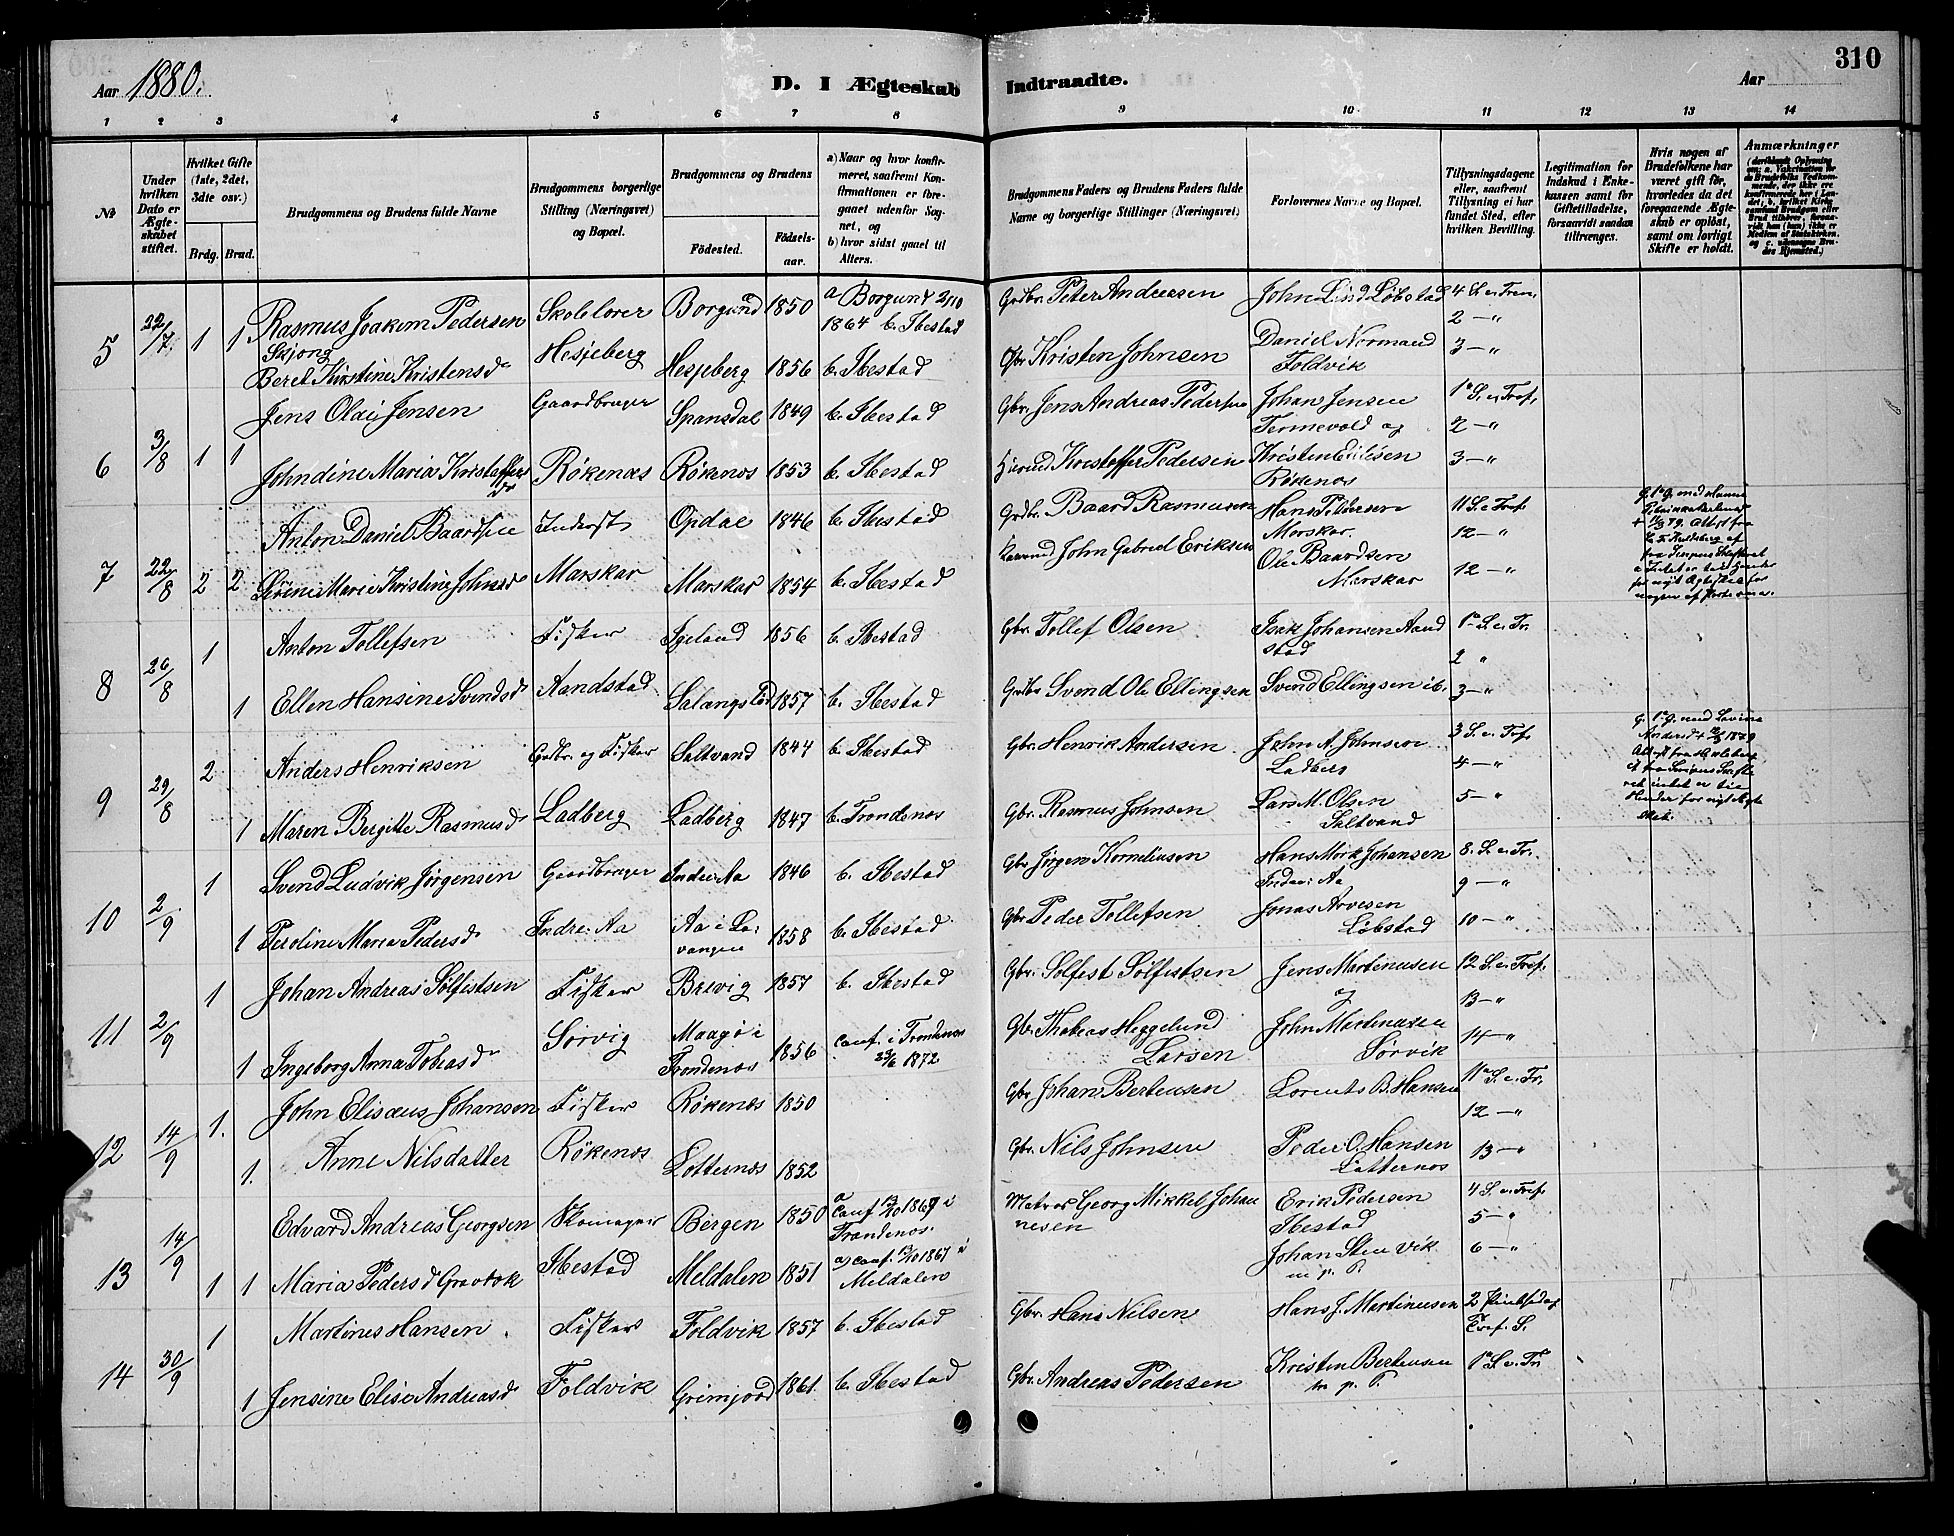 310
Aar 1880.
D. I Ægteskab Indtraadte.
Aar
1 2 3 4 5 6 7 8 9 10 11 12 13 14
№
Under hvilken Dato er Ægteskabet stiftet.
Hvilket Gifte (1ste, 2det, 3die osv.)
Brdg. Brud.
Brudgommens og Brudens fulde Navne
Brudgommens borgerlige Stilling (Næringsvei) og Bopæl.
Brudgommens og Brudens
Födested. Födsels-aar.
a) Naar og hvor konfirmeret, saafremt Konfirmationen er foregaaet udenfor Sognet, og
b) hvor sidst gaaet til Alters.
Brudgommens Faders og Brudens Faders fulde Navne og borgerlige Stillinger (Næringsvei)
Forlovernes Navne og Bopæl.
Tillysningsdagene eller, saafremt Tillysning ei har fundet Sted, efter hvilken Bevilling.
Legitimation for Indskud i Enkekassen samt for Giftetilladelse, forsaavidt saadan tiltrænges.
Hvis nogen af Brudefolkene har været gift för, hvorledes da det foregaaende Ægteskab er oplöst, samt om lovligt Skifte er holdt.
Anmærkninger
5 22/7 1 1 Rasmus Joakim Pedersen Skjong Skolelærer Borgund 1850 a Borgund 2/10 1864 b. Ibestad Grdbr. Peter Andreasen John Lind Löbstad 4 S. e. Tren.
2 — "
Beret Kirstine Kristensd. Hesjeberg Hesjeberg 1856 b. Ibestad Gbr. Kristen Johnsen Daniel Normand Foldvik 3 — "
6 3/8 1 1 Jens Olai Jensen Gaardbruger Spansdal 1849 b. Ibestad Gbr. Jens Andreas Pedersen Johan Jensen Tennevold og 1. S. e. Tref.
2 — "
Johndine Maria Kristoffersdr Rökenæs Rökenæs 1853 b. Ibestad Kristoffer Pedersen Kristen Eilesen Rökenæs 3 — "
7 22/8 2 2 Anton Daniel Baardsen Inderst Opdal 1846 b. Ibestad Grdbr. Baard Rasmussen Hans Pedersen Marskar. 11 S. e Tref.
12 — "
Marie Kristine Johnsd. Marskar Marskar 1854 b. Ibestad John Gabriel Eriksen Ole Baardsen Marskar 12 — "
8 26/8 1 Anton Tollefsen Fisker Igeland 1856 b. Ibestad Gbr. Tollef Olsen Isak Johansen Aandstad 1. S. e. Tr.
2 "
1 Ellen Hansine Svendsd. Aandstad Salangslid 1857 b. Ibestad Grdbr Svend Ole Ellingsen Svend Ellingsen ib. 3 — "
9 29/8 2 Anders Henriksen Grdbr. og Fisker Saltvand 1844 b. Ibestad Gbr. Henrik Andersen John A. Johnsen Ladberg 3 S. e. Tref.
4 — "
1 Maren Bergitte Rasmusd. Ladberg Ladberg 1847 b. Trondenæs Gbr. Rasmus Johnsen Lars M. Olsen Saltvand 5 — "
10 2/9 1 Svend Ludvik Jörgensen Gaardbruger Indre Aa 1846 b. Ibestad Gbr. Jörgen Korneliusen Hans Mörk Johansen Indre Aa 8. S. e. Tr.
9 — "
1 Peroline Maria Pedersd. Indre Aa Aa i Lavangen 1858 b. Ibestad Gbr Peder Tollefsen Jonas Arvesen Löbstad 10 — "
11 2/9 1 Johan Andreas Solfestsen Fisker Brevig 1857 b. Ibestad Gbr. Solfest Solfestsen Jens Martinusen og 12 S. e. Tref.
13 — "
1 Ingeborg Anna Tobiasd. Sörvig Maagö i Trondenæs 1856 conf. i Trondenæs 23/6 1872 Gbr. Tobias Heggelund Larsen John Martinusen Sörvik 14 — "
12 14/9 1. John Elisæus Johansen Fisker Rökenæs 1850 Gbr Johan Berteusen Lorents B. Hansen 11 S. e. Tr.
12 — "
1. Anne Nilsdatter Rökenæs Lotternæs 1852 Gbr. Nils Johnsen Peder O. Hansen Lotternæs 13 — "
13 14/9 1 1 Edvard Andreas Georgsen Skomager Bergen 1850 a conf. 1867 i Trondenæs. Matros Georg Mikkel Johannesen Erik Pedersen Ibestad 4 S. e. Tref.
5 — "
Maria Pedersd Gravrok Ibestad Meldalen 1851 a) conf. 13/10 1867 i Meldalen Johan Sten Vik m. p. P. 6 — "
14 30/9 1 Martines Hansen Fisker Foldvik 1857 b. Ibestad Gbr. Hans Nilsen Hans J. Martinusen 2 Pintsedag
Tref. S.
1 Jensine Elise Andreasd. Foldvik Grimjord 1861. b. Ibestad Gbr. Andreas Pedersen Kristen Berteusen m. p. P. 1. S. e. Tr